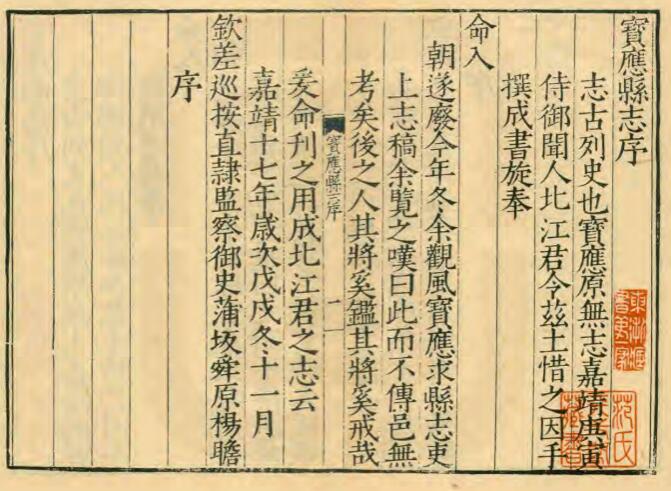 寶應縣志序
志古列史也寶應原無志嘉靖庚寅
侍御聞人北江君令茲土惜之因手
撰成書旋奉
命入
朝遂廢今年冬余觀風寶應求縣志吏
上志稿余覽之嘆曰此而不傳邑無
考矣後之人其將奚鑑其將奚戒哉
寶應縣志序
一
爰命刊之用成北江君之志云
嘉靖十七年歲次戊戌冬十一月
欽差巡按直隸監察御史蒲坂舜原楊瞻
序
范氏
藏書